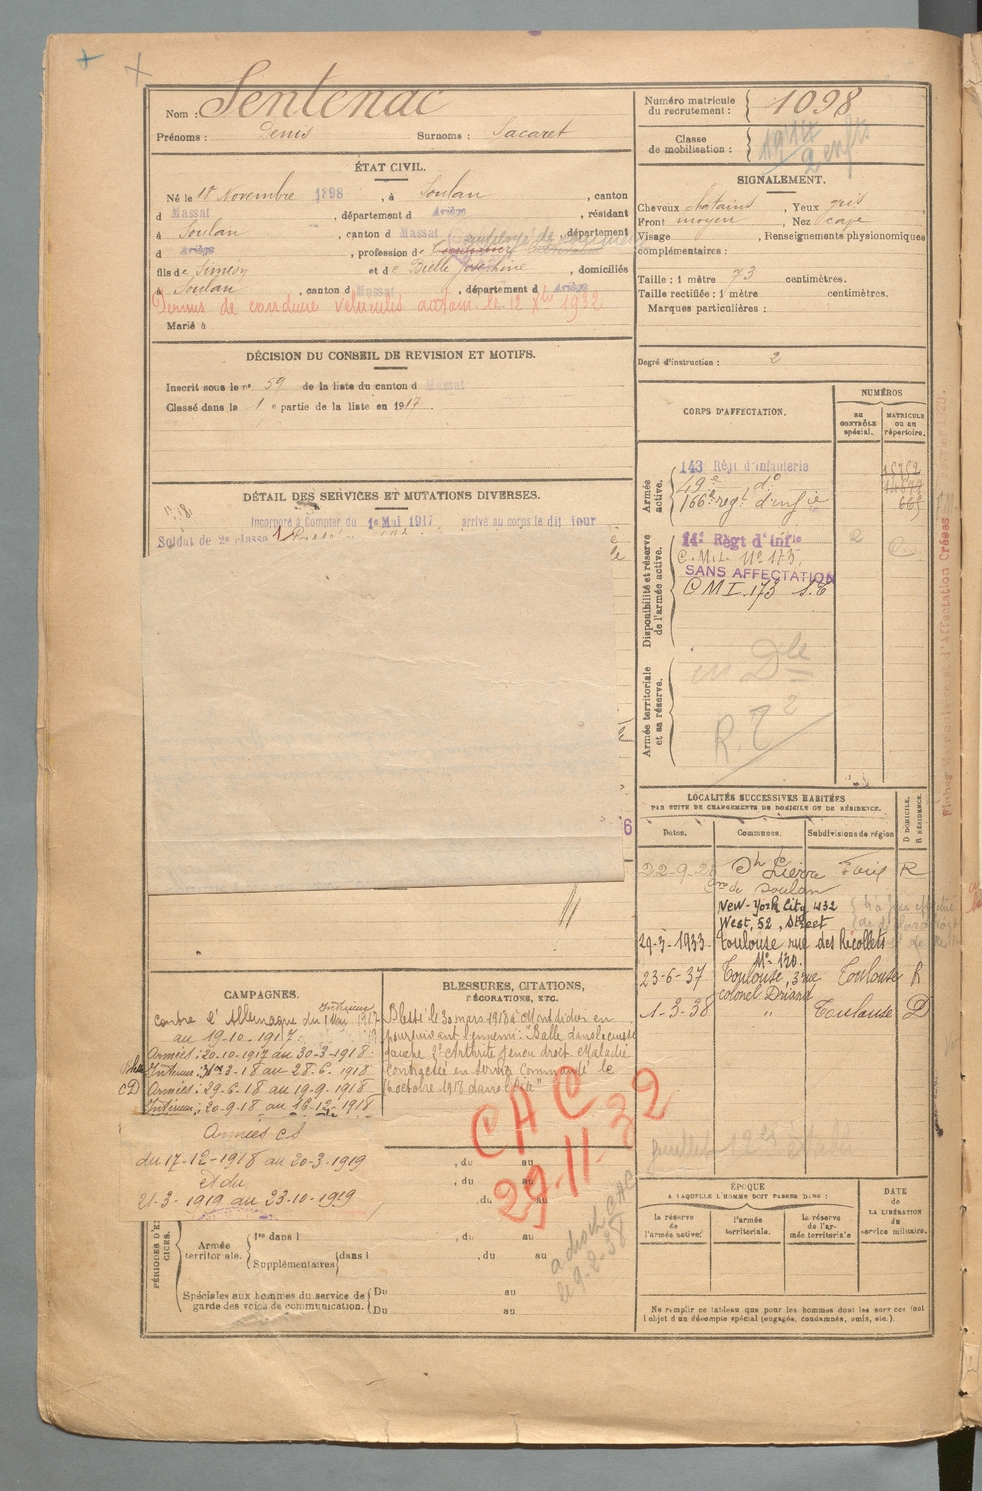 Nom : Sentenac
Prénoms : Denis Surnoms : Sacaret
ÉTAT CIVIL.
Né le 18 Novembre 1898, à Soulan, canton
d Massat, département d Ariège, résidant
à Soulan, canton d Massat, département
d Ariège, profession de employé de
fils de Siméon et de Bielle Joséphine, domiciliés
à Soulan, canton d Massat, département d Ariège
Permis de conduire véhicules autom. le 12 Xbre 1932
Marié à
DÉCISION DU CONSEIL DE REVISION ET MOTIFS.
Inscrit sous le n° 59 de la liste du canton d Massat
Classé dans la 1 e partie de la liste en 1917
DÉTAIL DES SERVICES ET MUTATIONS DIVERSES.
Incorporé à Compter du 1er Mai 1917 arrivé au corps le dit jour
Soldat de 2e classe
6
CAMPAGNES.
Contre l'Allemagne du Intérieur 1 Mai 1917
au 19-10-1917
Armées : 20-10-1917 au 30-3-1918
Intérieur : 31-3-18 au 28-6-1918
CD Armées : 29-6-18 au 19-9-1918
Intérieur : 20-9-18 au 16-12-1918
Armées CS
du 17-12-1918 au 20-3-1919
et du
21-3-1919 au 23-10-1919
BLESSURES, CITATIONS,
DÉCORATIONS, ETC.
Blessé le 30 mars 1918 à Montdidier en
poursuivant l'ennemi : "Balle dans la cuisse
gauche. 2° Arthrite genou droit. Maladie
Contractée en service Commandé le
6 octobre 1918
CAC
29-11-32
a droit CAC
le 9-2-38
, du au
, du au
, du au
PÉRIODES D'EXERCICES.
Armée territoriale.
1re dans l , du au
Supplémentaires dans l , du au
Spéciales aux hommes du service de garde des voies de communication.
Du au
Du au
Numéro matricule du recrutement : 1098
Classe de mobilisation : 1914
2 enfts
SIGNALEMENT.
Cheveux chatains, Yeux gris
Front moyen, Nez cave
Visage , Renseignements physionomiques
complémentaires :
Taille : 1 mètre 73 centimètres.
Taille rectifiée : 1 mètre centimètres.
Marques particulières :
Degré d'instruction : 2
CORPS D'AFFECTATION.
NUMÉROS
au CONTRÔLE spécial.
MATRICULE ou au répertoire.
Armée active.
143 Régt d'Infanterie
49e d°
166e regt d'infie
Disponibilité et réserve de l'armée active.
14e Régt d'Infie 2
C.M.I. N° 173.
SANS AFFECTATION
C M I. 173 S.E
Armée territoriale et sa réserve.
Dle
LOCALITÉS SUCCESSIVES HABITÉES
PAR SUITE DE CHANGEMENTS DE DOMICILE OU DE RÉSIDENCE.
Dates. Communes. Subdivisions de région D DOMICILE. R RÉSIDENCE.
St Pierre Foix R
Cne de Soulan
New-York City 432
West, 52, Street
29-3-1933. Toulouse rue des Récollets
N° 120.
23-6-37 Toulouse, 3 rue Toulouse R
colonel Driand
1-3-38 " Toulouse D
ÉPOQUE
A LAQUELLE L'HOMME DOIT PASSER DANS :
la réserve de l'armée active.
l'armée territoriale.
la réserve de l'armée territoriale
DATE de LA LIBÉRATION du service militaire.
Ne remplir ce tableau que pour les hommes dont les services font
l'objet d'un décompte spécial (engagés, condamnés, omis, etc.).